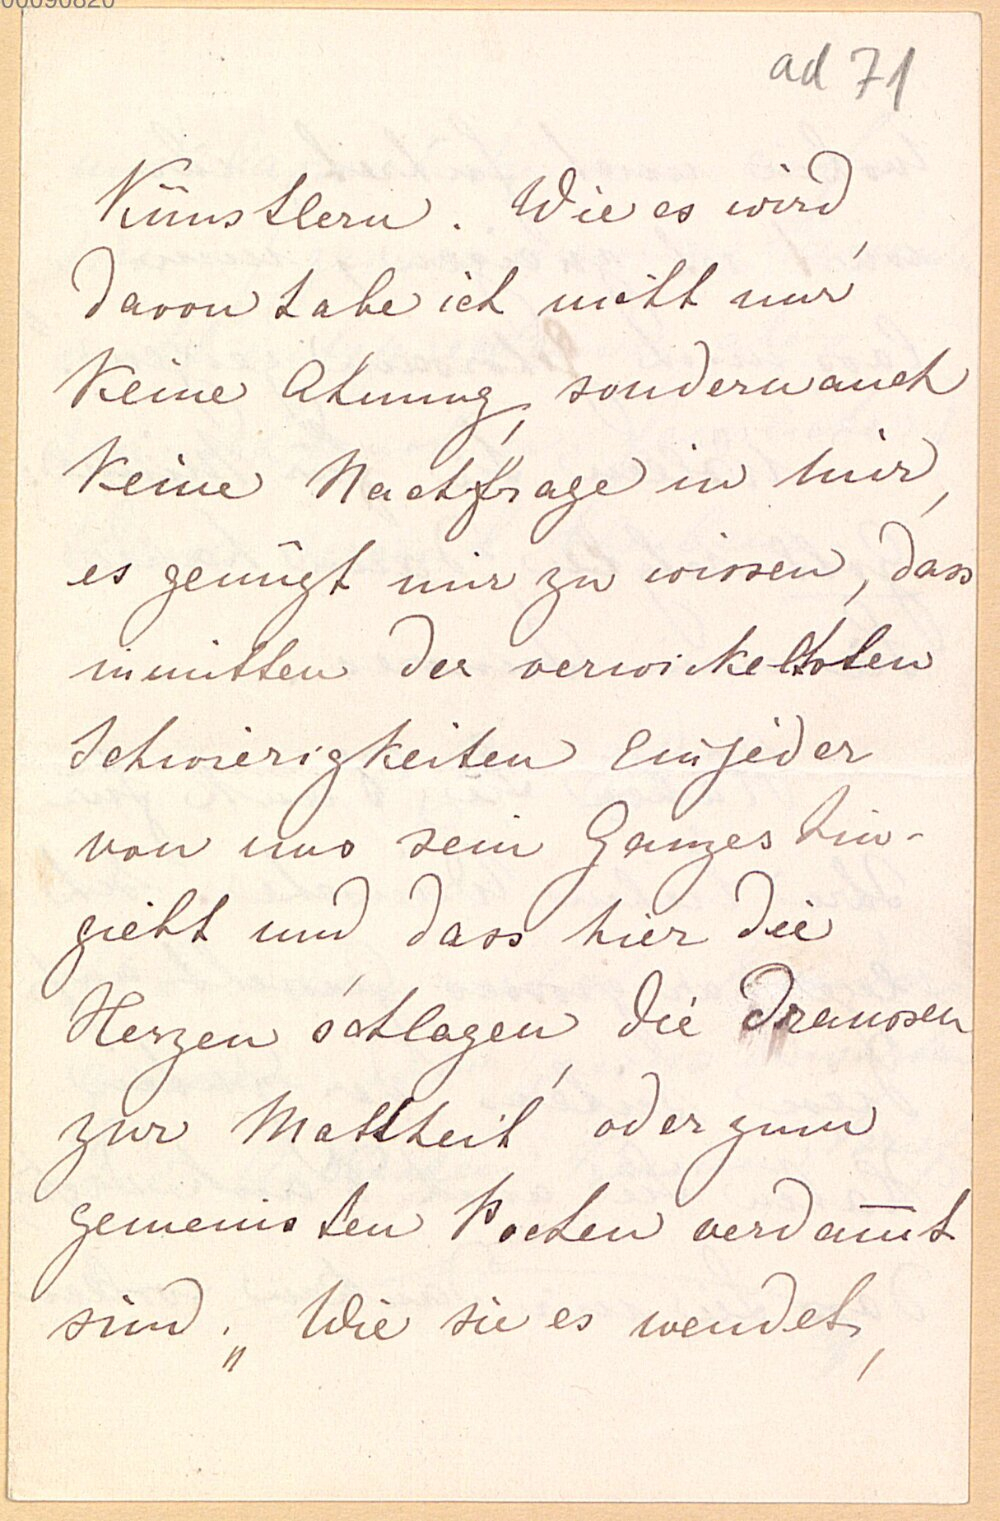 00090820
ad 71
Künstlern. Wie es wird,
davon habe ich nicht nur
keine Ahnung, sondern auch
keine Nachfrage in mir,
es genügt mir zu wissen, dass
inmitten der verwickeltsten
Schwierigkeiten Einjeder
von uns sein Ganzes hin-
giebt und dass hier die
Herzen schlagen, die draussen
zur Mattheit oder zum
gemeinsten Pochen verdam̅t
sind; „Wie sie es wendet,